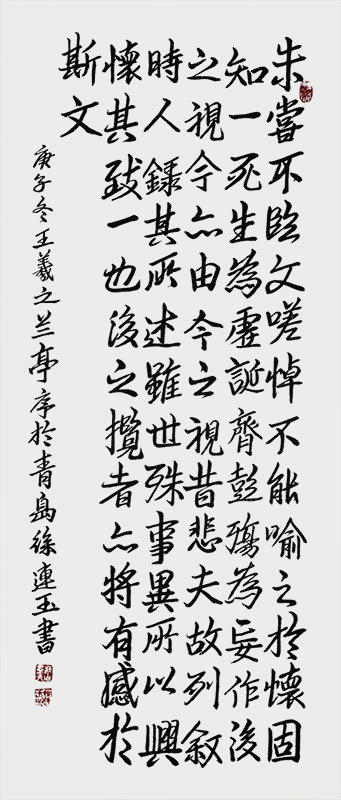 未嘗不臨文嗟悼不能喻之於懷固
知一死生為虛誕齊彭殤為妄作後
之視今亦由今之視昔悲夫故列敘
時人錄其所述雖世殊事異所以興
懷其致一也後之攬者亦將有感於
斯文
庚子冬王羲之兰亭序於青島徐連玉書